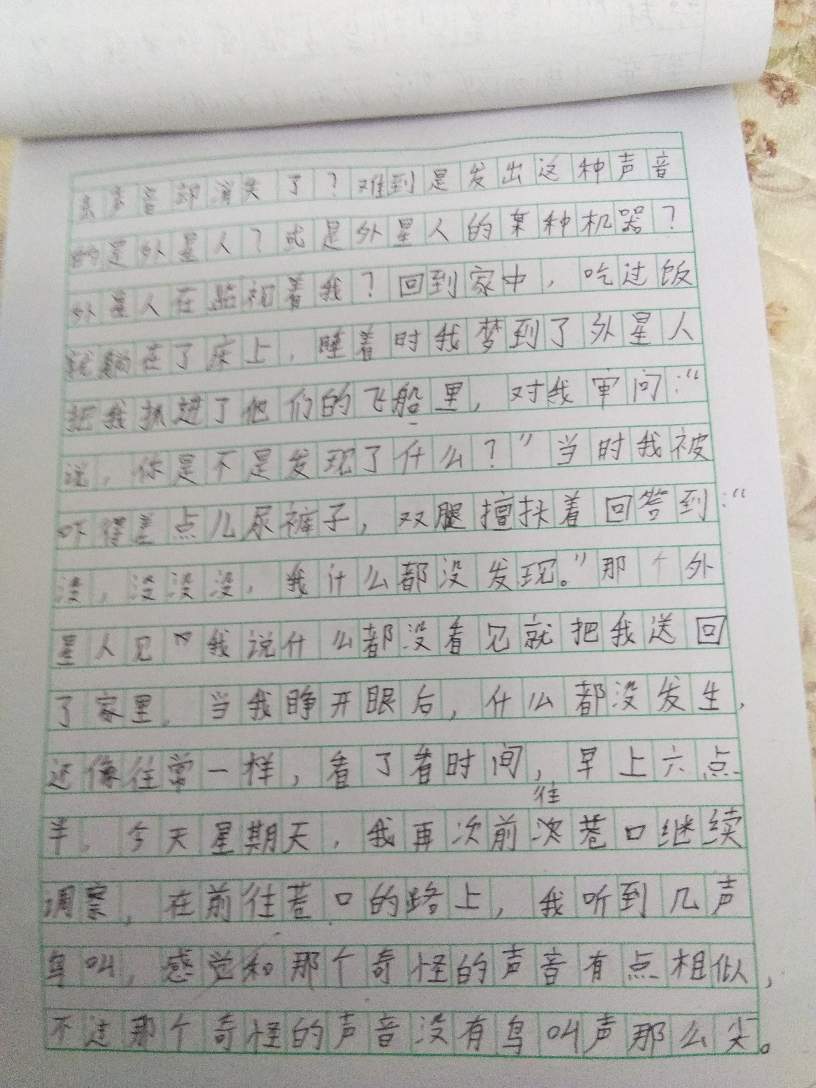 音却消失了？难到是发出这种声音
的是外星人？或是外星人的某种机器？
外星人在监视着我？回到家中，吃过饭
就躺在了床上，睡着时我梦到了外星人
把我抓进了他们的飞船里，对我审问：“
说，你是不是发现了什么？”当时我被
吓得差点儿尿裤子，双腿擅抖着回答到：“
没，没没没，我什么都没发现。”那个外
星人见我说什么都没看见就把我送回
了家里。当我睁开眼后，什么都没发生，
还像往常一样，看了看时间，早上六点
半。今天星期天，我再次前往巷口继续
调察，在前往巷口的路上，我听到几声
鸟叫，感觉和那个奇怪的声音有点相似，
不过那个奇怪的声音没有鸟叫声那么尖。